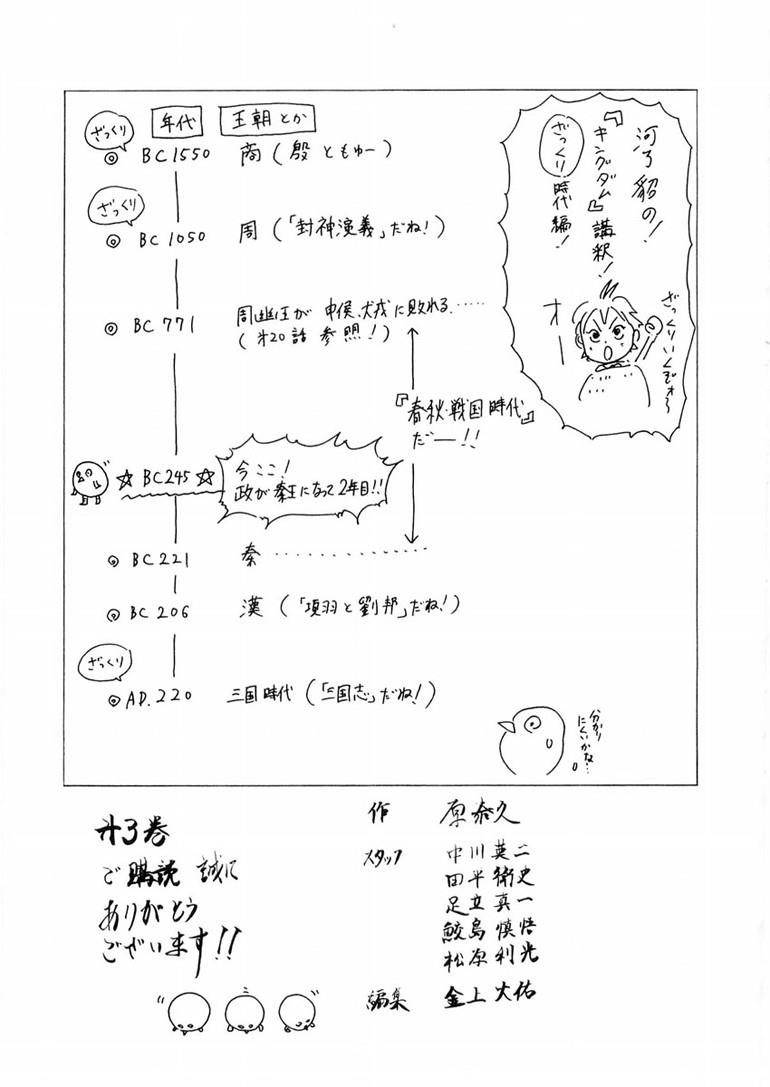 河了貂の！
『キングダム』講釈！
ざっくり時代編！
ざっくりいくぞォ〜
オー
年代
王朝とか
ざっくり
BC1550
商（殷ともゆー）
ざっくり
BC1050
周（「封神演義」だね！）
BC771
周幽王が申侯、犬戎に敗れる……
（才20話 参照！）
『春秋・戦国時代』
だー！！
☆BC245☆
今ここ！
政が秦王になって2年目！！
BC221
秦…………
BC206
漢（「項羽と劉邦」だね！）
ざっくり
AD.220
三国時代（「三国志」だね！）
分かり
にくいかな…
才3巻
ご購読 誠に
ありがとう
ございます！！
作 原泰久
スタッフ 中川英二
田平衛史
足立真一
鮫島慎悟
松原利光
編集 金上大佑